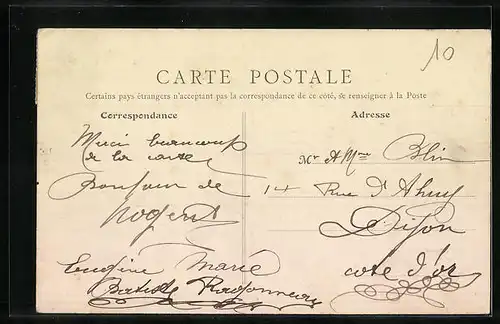 10
CARTE POSTALE
Certains pays étrangers n'acceptant pas la correspondance de ce côté, se renseigner à la Poste
Correspondance
Adresse
Merci beaucoup
de la carte
Bonjour de
Nogent
Eugénie Marie
Batiste
Mr & Mme Blin
14 Rue d'Ahuy
Dijon
Cote d'or